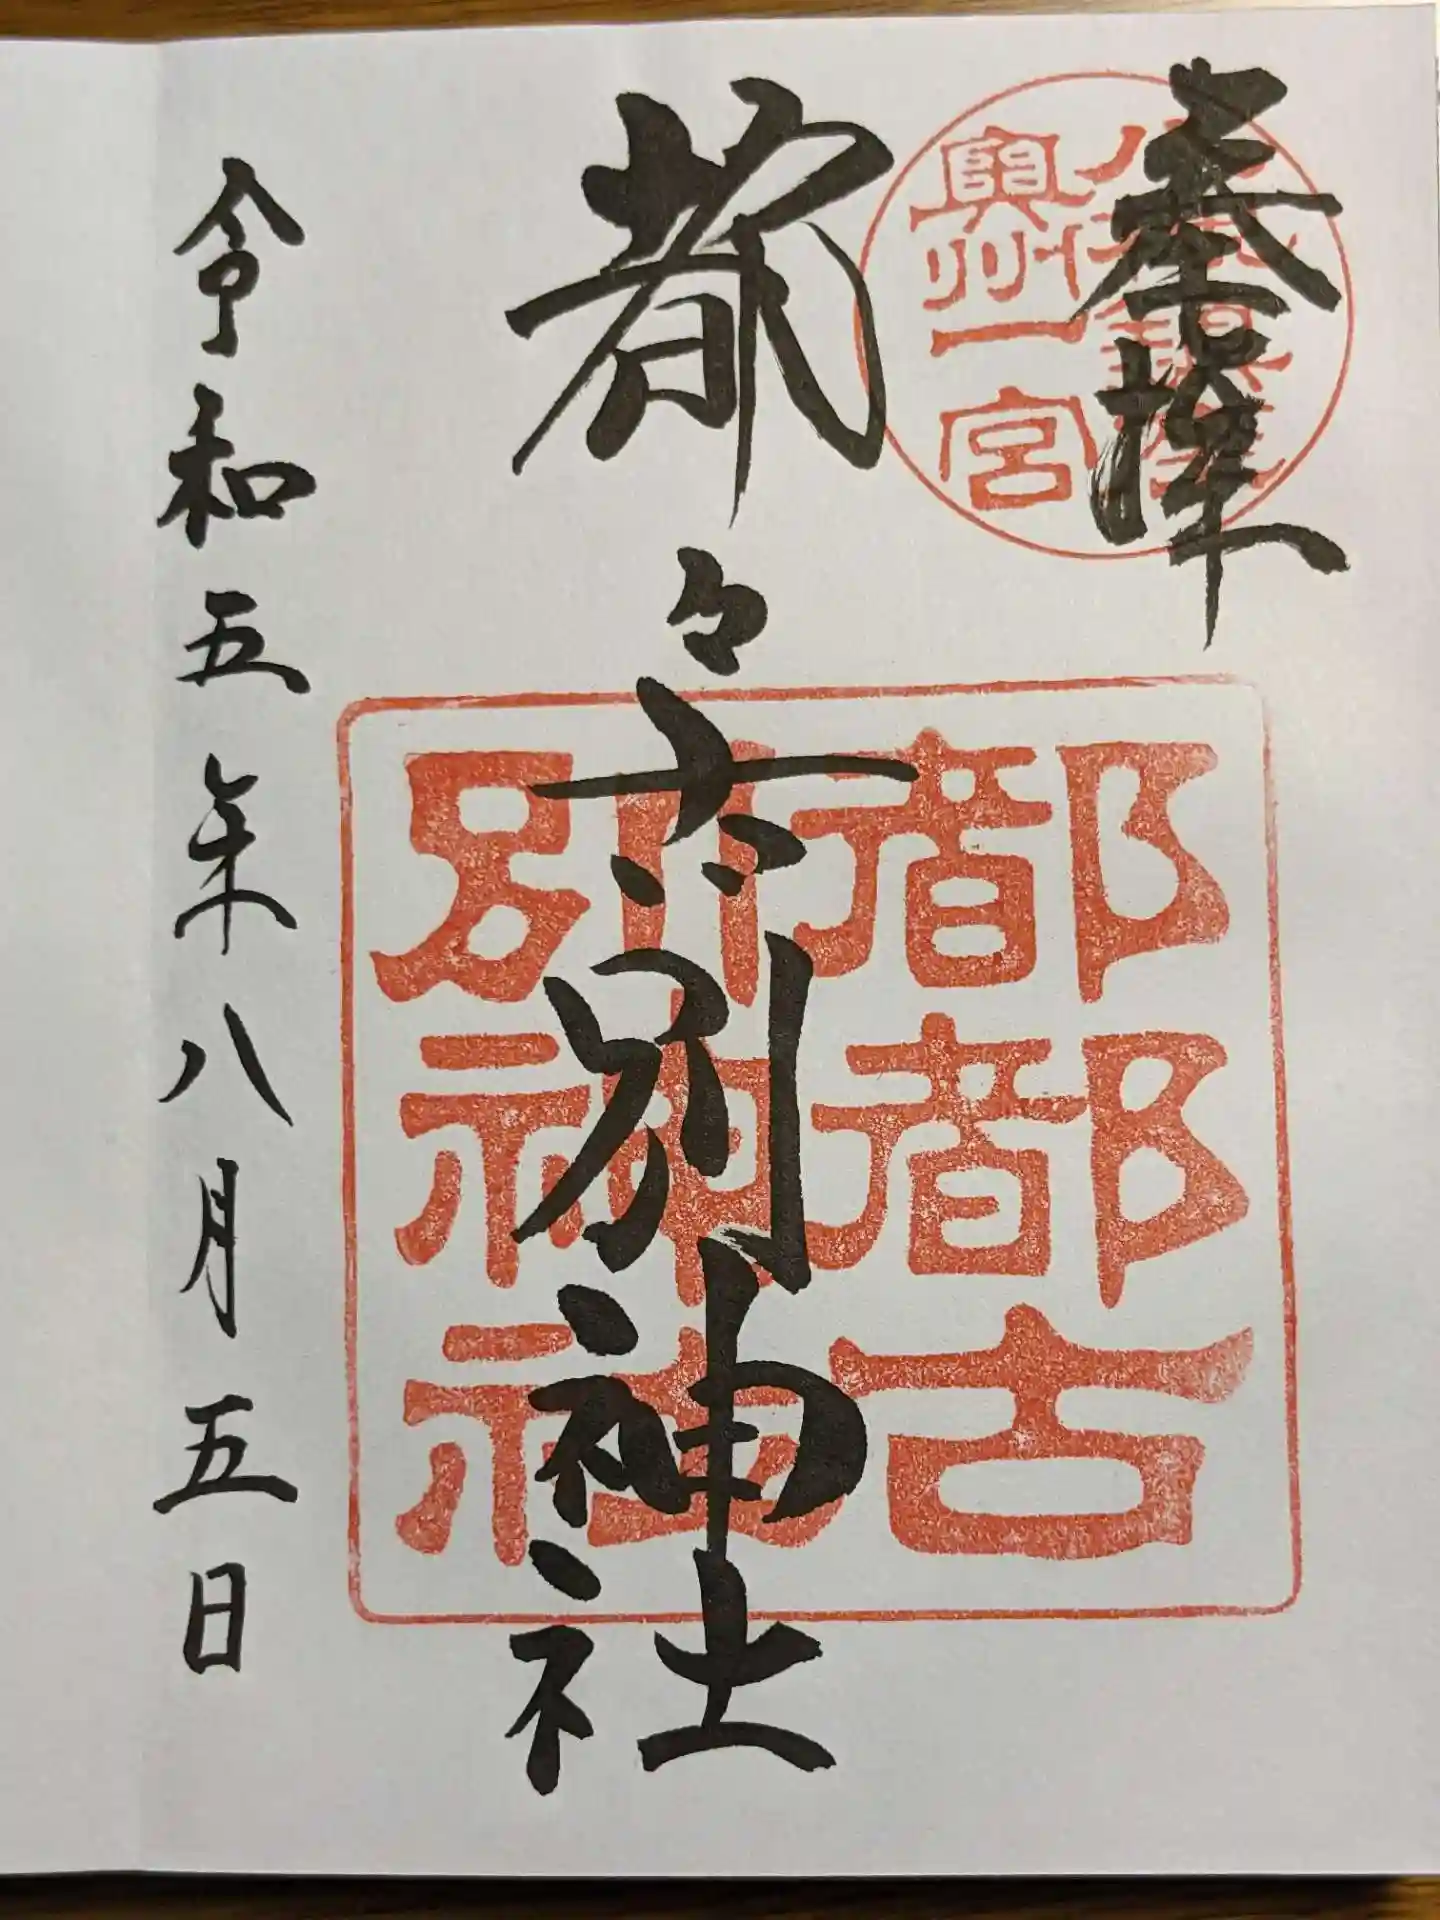 奉拝
八槻鎮座
奥州一宮
都々古別神社
都都古
別神社
令和五年八月五日